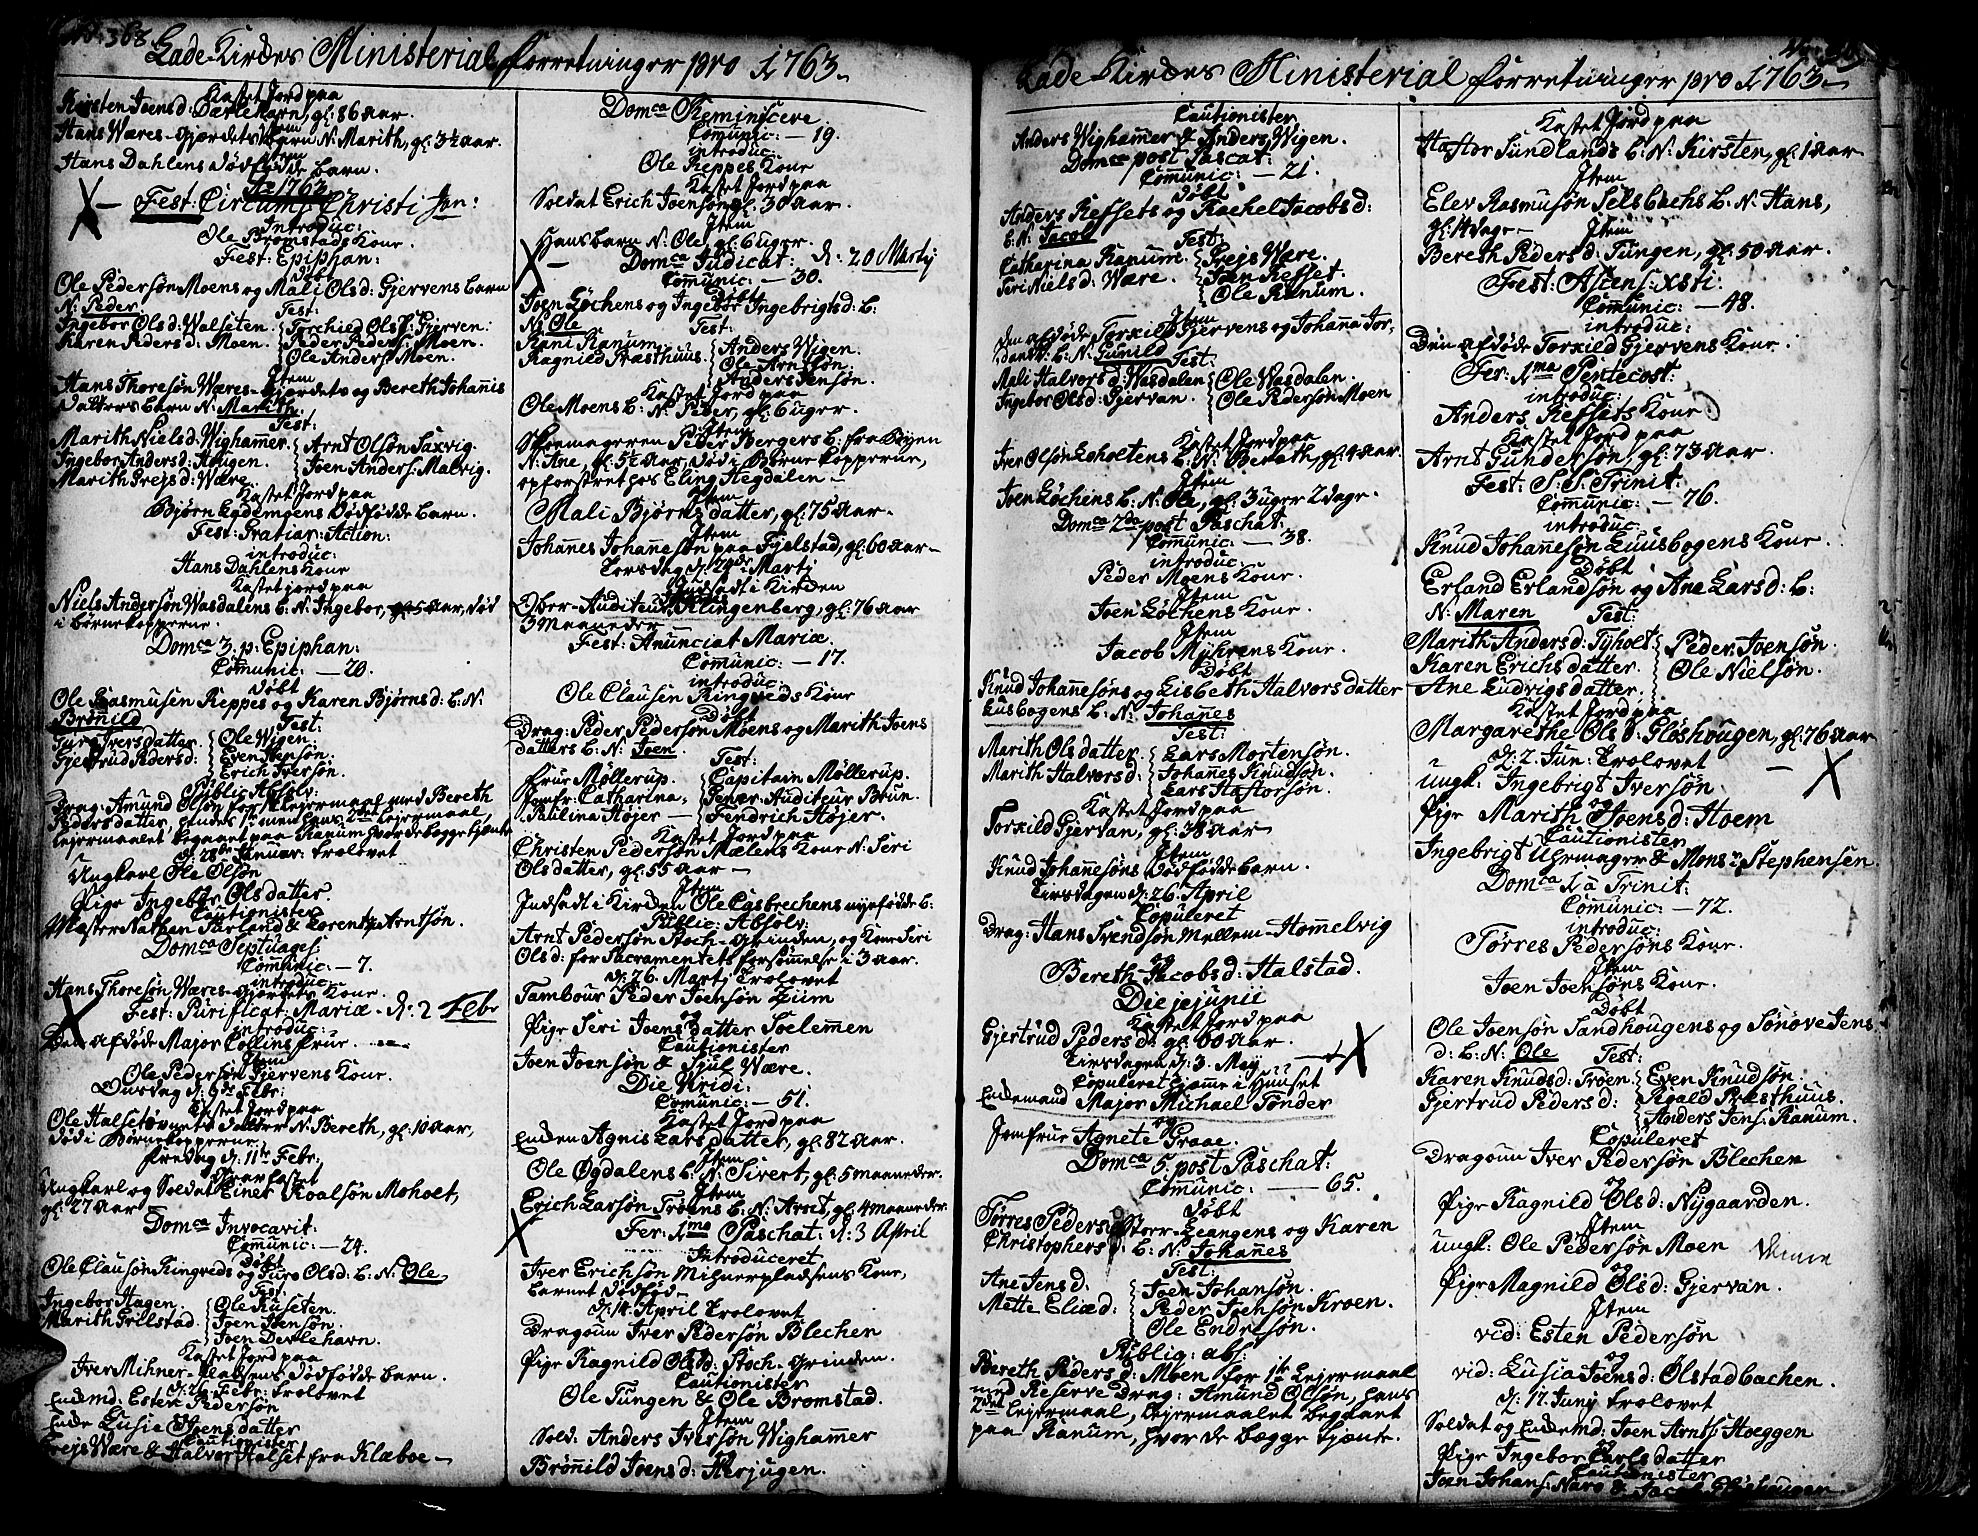 368
Lade Kirches Ministerial forretninger pro 1763
Kastet Jord paa
Kirsten Joensd: Dævlehavn, gl: 86 aar.
Item
Hans Wæres-Gjærdets barn N: Marith, gl: 3½ aar.
Item
Hans Dahlens dødfødde barn.
Ao 1763
Fest: Circums: Christi Jan:
Introduc:
Ole Bromstads Kone.
Fest: Epiphan:
Døbt
Ole Pedersøn Moens og Mali Olsd: Gjervens barn
N: Peder
Test:
Ingebor Olsd: Walseten. Torchild Ols: Gjerven.
Karen Pedersd: Moen. Peder Peders: Moen.
Ole Anders: Moen.
Item
Hans Thoresøn Wæres-Gjærdets og Bereth Johanis
datters barn N: Marith.
Test:
Marith Nielsd: Wighammer. Arnt Olsøn Saxvig.
Ingebor Andersd: Hougen. Joen Anders: Malvig.
Marith Prejsd: Wære.
Kastet Jord paa
Bjørn Egdemoens dødfødde barn.
Fest: Gratiar: Action:
introduc:
Hans Dahlens Kone
Kastet jord paa
Niels Andersøn Wasdalens b: N: Ingebor, gl: 5 aar, død
i børnekopperne.
Domca 3. p: Epiphan:
Comunic: — 20.
Døbt
Ole Rasmusen Reppes og Karen Bjørnsd: b: N:
Brønild
Test:
Guru Iversdatter. Ole Wigen.
Gjertrud Pedersd: Even Jensøn.
Erich Iversøn.
Public: Absolv:
Drag: Amund Olsøn for 1te lejermaal med Bereth
Pedersdatter,
lejermaalet begaaet paa Ranum hvor de begge tjente
d: 28de Januar: trolovet
Ungkarl Ole Olsøn
og
Pige Ingebor Olsdatter.
Cautionister
Mester Nathan Farland & Lorentz Arntsøn.
Domca Septuages:
Comunic: — 7.
introduc:
Hans Thoresøn Wæres-Gjærdets Kone.
Fest: Purificat: Mariæ - d: 2 Febr
introduc:
Den afdøde Major Collins frue.
Item
Ole Pedersøn Gjervens Kone.
Onsdag d: 9de Febr:
Kastet Jord paa
Ole Halsetøvnets datter N: Bereth, gl: 10 aar,
død i Børnekopperne.
fredag d: 11te Febr:
Ungkarl og Soldat Einer Roalsøn Moholt,
gl: 27 aar
Domca Invocavit:
Comunic: — 24.
Døbt
Ole Clausøn Ringveds og Guro Olsd: b: N: Ole
Test:
Ingebor Hagen. Ole Ruseten.
Marith Grilstad. Joen Joensøn.
Joen Devlehavn.
Kastet Jord paa
Iver Mihner-Pladsens dødfødde barn.
d: 26 Febr: trolovet
Enkemd Esten Pedersøn
og
Enke Lusia Joensdatter
Cautionister
Prejs Wære & Halvor Halset fra Klæboe —
Domca Reminiscere
Comunic: — 19.
introduc:
Ole Reppes Kone
Kastet Jord paa
Soldat Erich Joensøn gl: 30 aar.
Item
Hans barn N: Ole, gl: 6 uger.
Domca Judicat: d: 20 Martij
Comunic: — 30.
Døbt
Joen Løchens og Ingebor Ingebrigtsd: b:
N: Ole
Test:
Rani Ranum. Anders Wigen.
Ragnild Præsthuus. Ole Arntsøn.
Anders Jensøn.
Kastet Jord paa
Ole Moens b: N: Peder, gl: 6 uger.
Item
Skomageren Peder Bergers b: fra Byen
N: Ane, gl: 5½ aar, død i Børnekopperne,
opfostret hos Eling Regdalen —
Item
Mali Bjørnsdatter, gl: 75 aar.
Item
Johanes Johanesøn paa Fjelstad, gl: 60 aar —
Torsdag d: 24de Martj
Indsadt i Kirken
Ober-Auditeur Klingenberg, gl: 76 aar
3 maaneder
Fest: Anunciat Mariæ.
Comunic: — 17.
introduc:
Ole Clausen Ringveds Kone
Døbt
Drag: Peder Pedersøn Moens og Marith Joens
datters b: N: Joen.
Test:
Frue Møllerup. Capitain Møllerup.
Jomfr: Catharina. Gener: Auditeur Brun.
Paulina Højer — Fendrich Højer.
Kastet Jord paa
Christen Pedersøn Mælens Kone N: Seri
Olsdatter, gl: 55 aar —
Item
Indsadt i Kirken Ole Egsbrechens nyefødde b:
Public: Absolv:
Arnt Pedersøn Stoch-Grinden, og Kone Seri
Olsd: for Sacramentets forsømmelse i 3 aar.
d: 26. Martj trolovet
Tambour Peder Joensøn Lium
og
Pige Seri Joensdatter Soelemen
Cautionister
Joen Joensøn & Sjul Wære.
Die Viridi:
Comunic: — 51.
Kastet Jord paa
Enken Agnis Larsdatter, gl: 82 aar.
Item
Ole Øgdalens b: N: Sivert, gl: 5 maaneder.
Item
Erich Larsøn Trøens b: N: Arnt, gl: 4 maaneder.
Fer: 1ma Paschat: d: 3 April
Introduceret
Iver Erichsøn Mihnerpladsens Kone,
barnet dødfød —
d: 14. April trolovet
Dragoun Iver Pedersøn Blechen
og
Pige Ragnild Olsd: Stoch-Grinden.
Cautionister
Ole Tungen & Ole Bromstad.
Item
Sold: Anders Iversøn Wighammer
og
Brønild Joensd: Herjugen.
Lade Kirches Ministerial forretninger pro 1763
Cautionister
Anders Wighammer & Anders Wigen.
Domca post Pascat:
Comunic: — 21.
Døbt
Anders Refsets og Rachel Jacobsd:
b: N: Jacob
Test:
Catharina Ranum. Prejs Wære.
Seri Nielsd: Wære. Joen Refset.
Ole Ranum.
Item
den afdøde Torkild Gjervens og Johana Jor-
dans b: N: Gunild
Test:
Mali Halvorsd: Wasdalen Ole Wasdalen.
Ingebor Olsd: Gjervan. Ole Pedersøn Moen
Kastet Jord paa
Iver Olsøn Loholtens b: N: Bereth, gl: 4 aar.
Item
Joen Løchens b: N: Ole, gl: 3 uger 2 dage.
Domca 2da post Paschat:
Comunic: — 38.
introduc:
Peder Moens Kone.
Item
Joen Løchens Kone.
Item
Jacob Myhrens Kone.
Døbt
Knud Johanesøns og Lisbeth Halvorsdatter
Lusbogens b: N: Johanes
Test:
Marith Olsdatter. Lars Mortensøn.
Marith Halvorsd: Johanes Knudsøn.
Lars Hastorsøn.
Kastet Jord paa
Torkild Gjervan, gl: 38 aar
Item
Knud Johanesøns dødfødde barn.
Tirsdagen d: 26. April
Copuleret
Drag: Hans Svendsøn Mellem-Hommelvig
og
Bereth Jacobsd: Halstad.
Die jejunii
Kastet Jord paa
Gjertrud Pedersd: gl: 60 aar.
Tirsdagen d: 3. May
Copuleret hjemme i Huuset
Enkemand Major Michael Tønder
og
Jomfrue Agnete Graae.
Domca 5. post Paschat:
Comunic: — 65.
Døbt
Tørres Peders: Storr-Leangens og Karen
Christophersd: b: N: Johanes
Test:
Ane Jensd. Joen Johansøn.
Mette Eliæd: Peder Joensøn Kroen.
Ole Endresøn.
Publiq: abs:
Bereth Pedersd: Moen for 1te lejermaal
med Reserve Drag: Amund Olsøn, hans
2det lejermaal, lejermaalet begaaet
paa Ranum, hvor de begge tjente.
Kastet Jord paa
Hastor Sundlands b: N: Kirsten, gl: 1 aar
Item
Elev Rasmusøn Selsbachs b: N: Hans,
gl: 14 dage —
Item
Bereth Pedersd: Tungen, gl: 50 aar.
Fest: Ascens: Xsti:
Comunic: — 48.
introduc:
Den afdøde Torkild Gjervens Kone.
Fer: 1ma Pentecost:
introduc:
Anders Refsets Kone
Kastet Jord paa
Arnt Gundersøn, gl: 73 aar.
Fest: S. S. Trinit:
Comunic: — 76.
introduc:
Knud Johanesøn Luusbogens Kone.
Døbt
Erland Erlandsøn og Ane Larsd: b:
N: Maren
Test:
Marith Andersd: Tyholt. Peder Joensøn.
Karen Erichsdatter. Ole Nielsøn.
Ane Ludvigsdatter.
Kastet Jord paa
Margarethe Olsd: Gløshougen, gl: 76 aar
d: 2. Jun: trolovet
Ungk: Ingebrigt Iversøn
og
Pige Marith Joensd: Hoem
Cautionister
Ingebrigt Uhrmager & Monsr Stephensen.
Domca 1 a Trinit:
Comunic: — 72.
introduc:
Tørres Pedersøns Kone.
Item
Joen Joensøns Kone.
Døbt
Ole Joensøn Sandhougens og Sønøve Jens
d: b: N: Ole
Test:
Karen Knudsd: Trøen. Even Knudsøn.
Gjertrud Pedersd: Roald Præsthuus.
Anders Jens: Ranum.
Copuleret
Dragoun Iver Pedersøn Blechen
og
Pige Ragnild Olsd: Nygaarden.
Item
Ungk: Ole Pedersøn Moen
og
Pige Magnild Olsd: Gjervan.
Item
vid: Esten Pedersøn
og
vid: Lusia Joensd: Olstadbachen.
d: 17. Junij trolovet
Soldat og Enkemd: Joen Arnts: Hoeggen
og
Pige Ingebor Carlsdatter
Cautionister
Joen Johans: Narv & Jacob Gløshougen